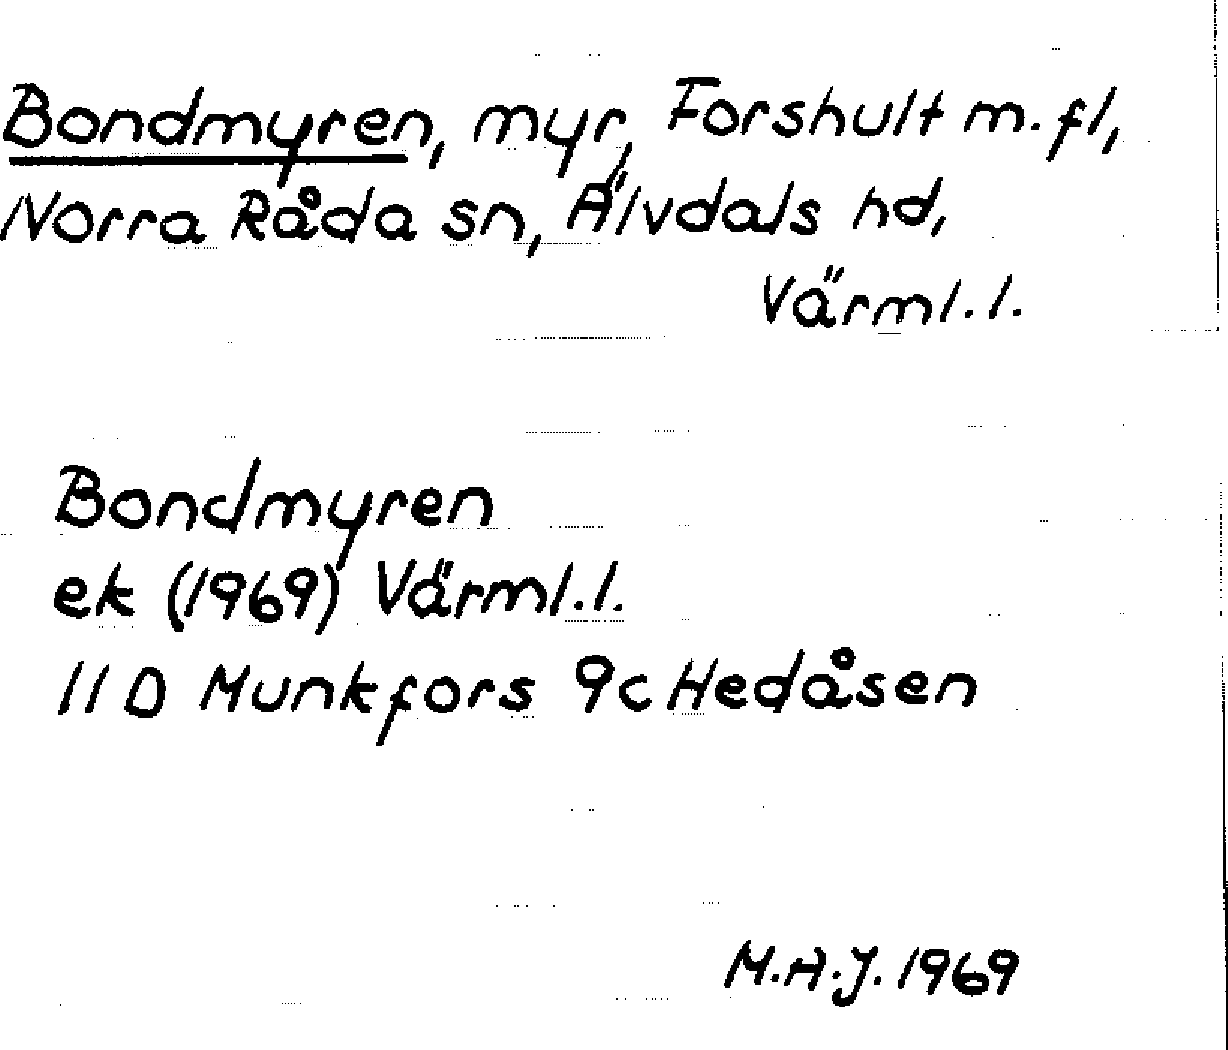 Bondmyren, myr, Forshult m.fl,
Norra Råda sn, Älvdals hd,
Värml.l.
Bondmyren
ek (1969) Värml.l.
11D Munkfors 9c Hedåsen
M.A.J. 1969